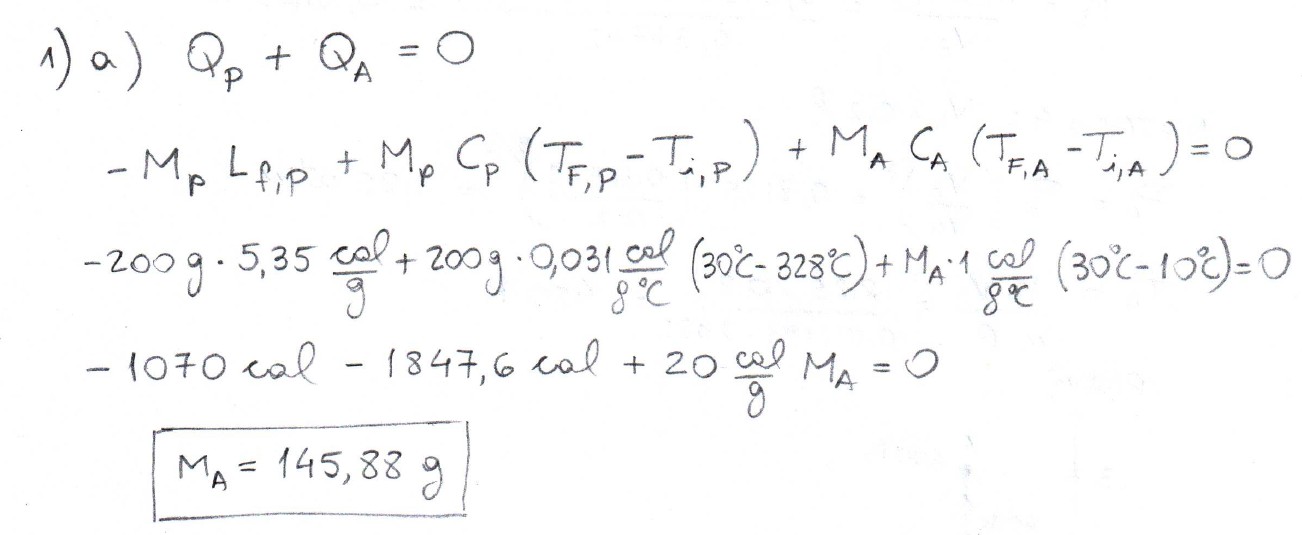 1) a) Q_P + Q_A = 0
- M_P L_f,P + M_P C_P (T_F,P - T_i,P) + M_A C_A (T_F,A - T_i,A) = 0
-200 g · 5,35 cal/g + 200 g · 0,031 cal/g°C (30°C - 328°C) + M_A · 1 cal/g°C (30°C - 10°C) = 0
- 1070 cal - 1847,6 cal + 20 cal/g M_A = 0
M_A = 145,88 g